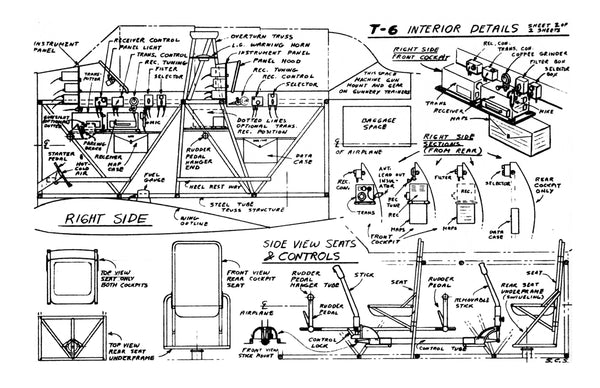 T-6 INTERIOR DETAILS
SHEET 2 OF
2 SHEETS
INSTRUMENT
PANEL
RECEIVER CONTROL
PANEL LIGHT
TRANS. CONTROL
REC. TUNING
FILTER
SELECTOR
TRANS-
MITTER
OVERTURN TRUSS
L.G. WARNING HORN
INSTRUMENT PANEL
PANEL HOOD
REC. TUNING
REC. CONTROL
SELECTOR
THIS SPACE
MACHINE GUN
MOUNT AND GEAR
ON GUNNERY TRAINERS
RIGHT SIDE
FRONT COCKPIT
REC. CON.
TRANS. CON.
COFFEE GRINDER
FILTER BOX
SELECTOR
BOX
TRANS
RECEIVER
MAPS
MIKE
MIC
DOTTED LINES
OPTIONAL TRANS.
REC. POSITION
BAGGAGE
SPACE
RIGHT SIDE
SECTIONS
(FROM REAR)
STARTER
PEDAL
PARKING
BRAKE
RECEIVER
MAP
CASE
FUEL
GAUGE
RUDDER
PEDAL
HANGER
END
DATA
CASE
℄ OF AIRPLANE
HEEL REST WAY
STEEL TUBE
TRUSS STRUCTURE
WING
OUTLINE
RIGHT SIDE
REC.
CON.
ANT.
LEAD OUT
INSUL-
ATOR
REC TUNE
TRANS
REC
MAPS
FRONT
COCKPIT
FILTER
REC.
MAPS
SELECTOR
DATA
CASE
REAR
COCKPIT
ONLY
TOP VIEW
SEAT ONLY
BOTH COCKPITS
TOP VIEW
REAR SEAT
UNDERFRAME
FRONT VIEW
REAR COCKPIT
SEAT
SIDE VIEW SEATS
& CONTROLS
RUDDER
PEDAL
HANGER TUBE
STICK
RUDDER
PEDAL
℄
AIRPLANE
FRONT VIEW
STICK MOUNT
CONTROL
LOCK
CONTROL TUBE
SEAT
RUDDER
PEDAL
REMOVABLE
STICK
REAR SEAT
UNDERFRAME
(SWIVELING)
SEAT